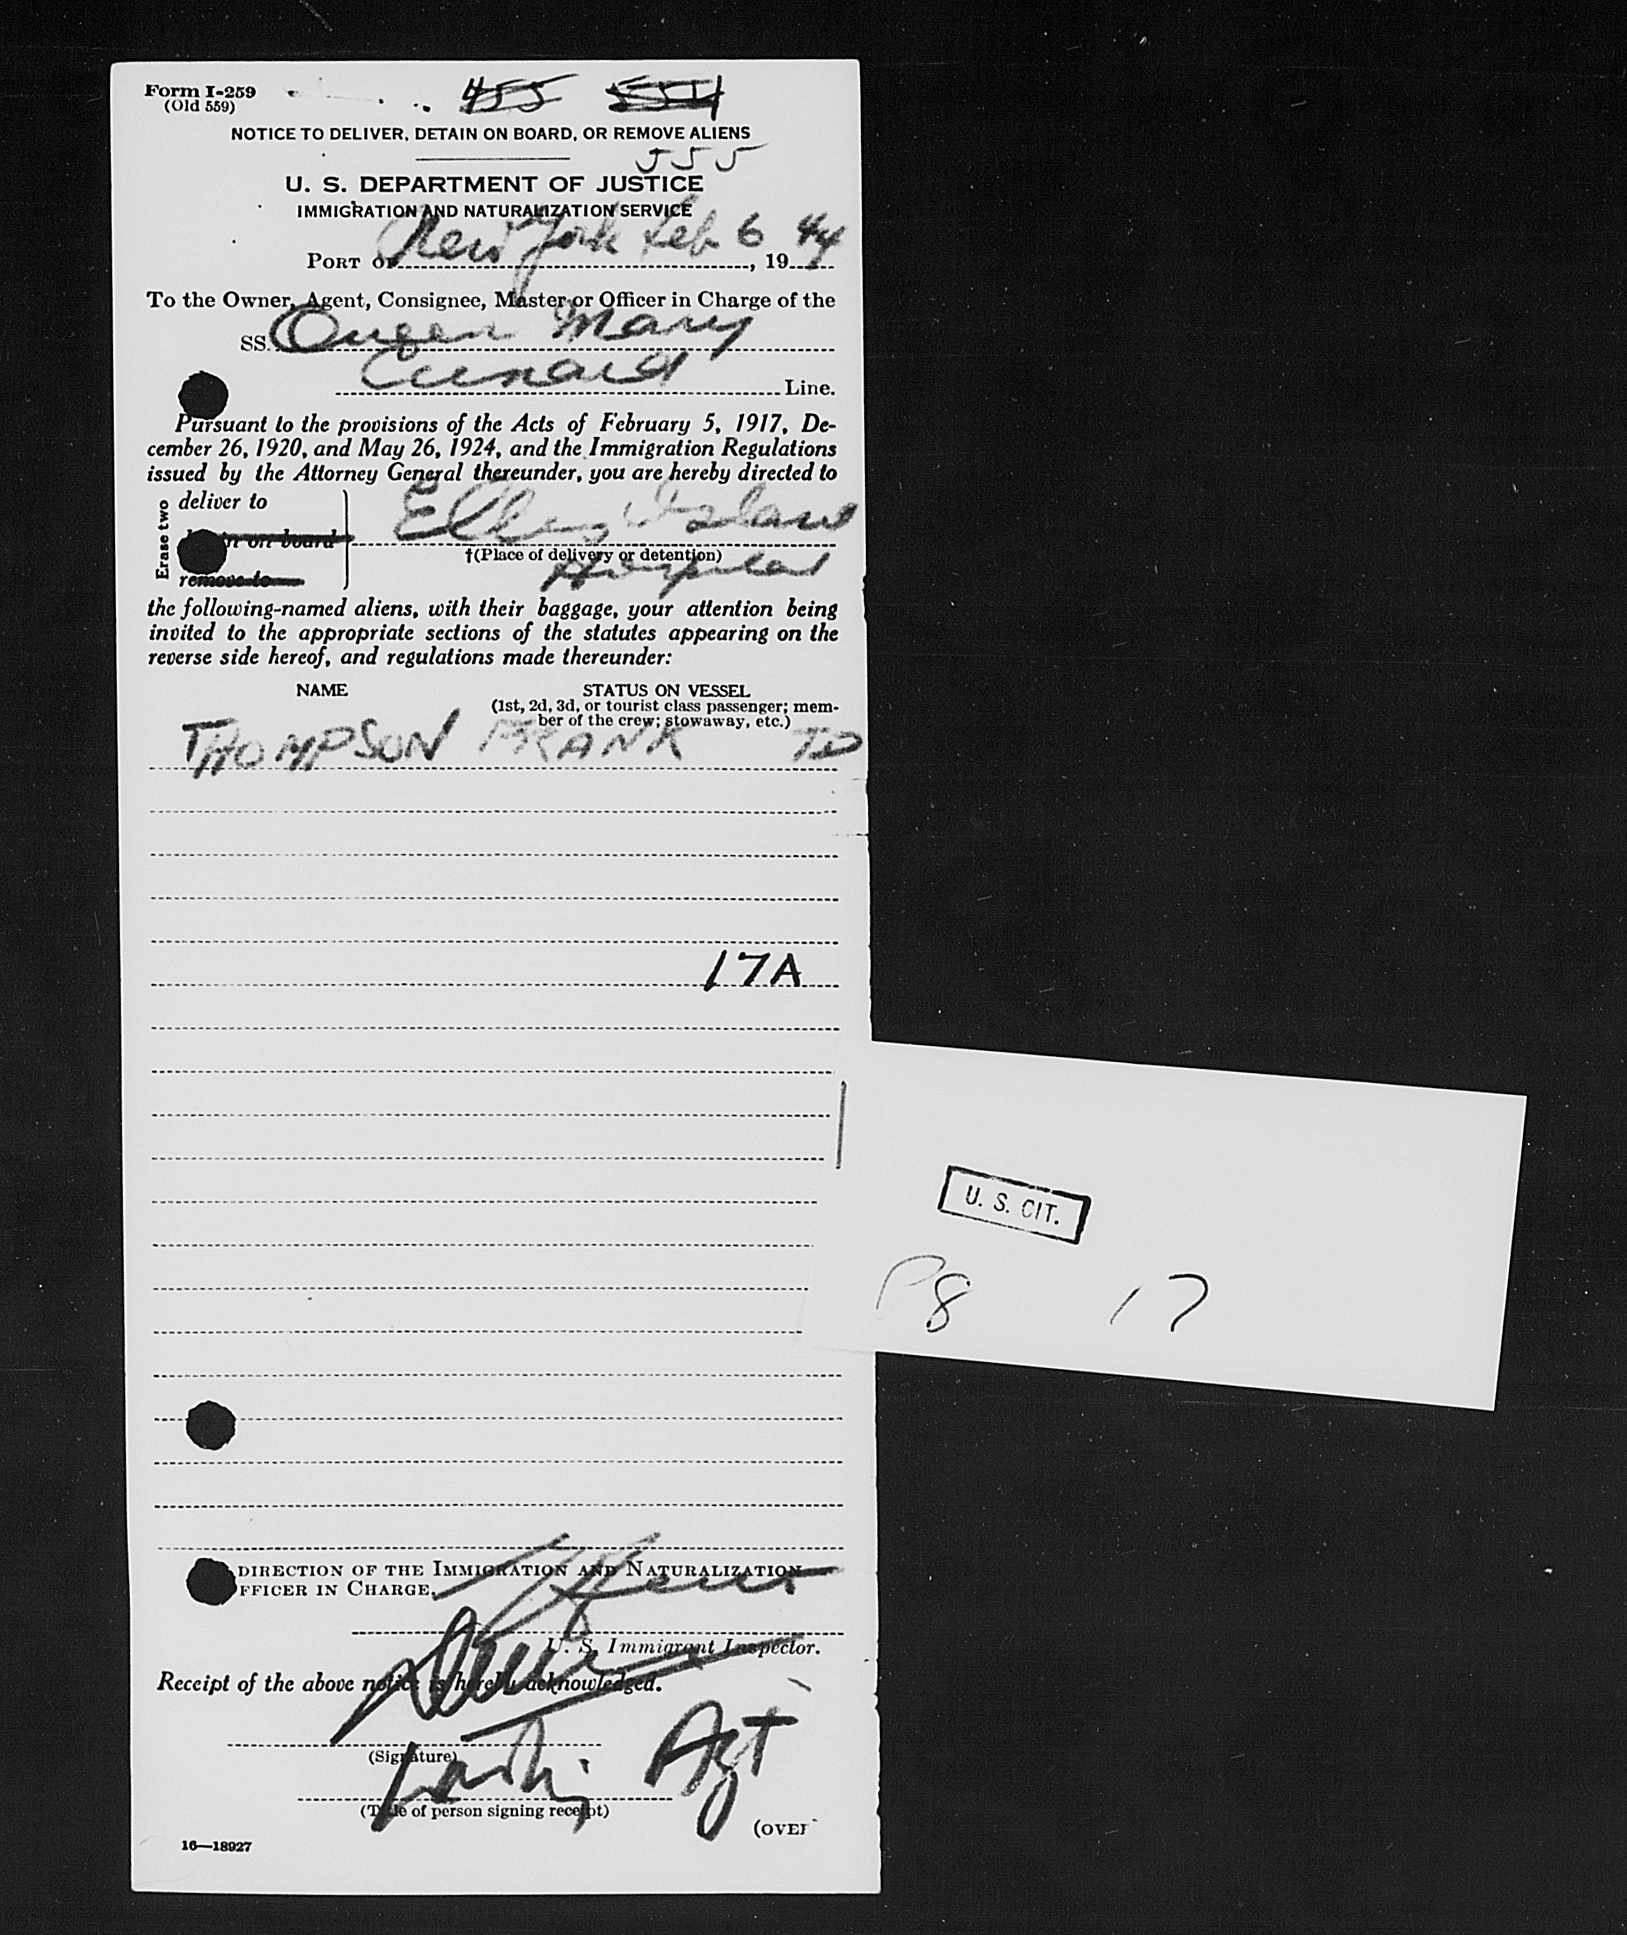 Form I-259
(Old 559)
455 554
NOTICE TO DELIVER, DETAIN ON BOARD, OR REMOVE ALIENS
555
U. S. DEPARTMENT OF JUSTICE
IMMIGRATION AND NATURALIZATION SERVICE
PORT OF New York Feb 6, 1944
To the Owner, Agent, Consignee, Master or Officer in Charge of the
SS. Queen Mary
Cunard Line.
Pursuant to the provisions of the Acts of February 5, 1917, De-
cember 26, 1920, and May 26, 1924, and the Immigration Regulations
issued by the Attorney General thereunder, you are hereby directed to
Erase two
deliver to
on board
Ellis Island
†(Place of delivery or detention)
remove to
Hospital
the following-named aliens, with their baggage, your attention being
invited to the appropriate sections of the statutes appearing on the
reverse side hereof, and regulations made thereunder:
NAME STATUS ON VESSEL
(1st, 2d, 3d, or tourist class passenger; mem-
ber of the crew; stowaway, etc.)
THOMPSON FRANK TD
17A
U. S. CIT.
P8 17
DIRECTION OF THE IMMIGRATION AND NATURALIZATION
FFICER IN CHARGE.
U. S. Immigrant Inspector.
Receipt of the above notice is hereby acknowledged.
(Signature)
Agt
(Title of person signing receipt)
(OVER
16—18927